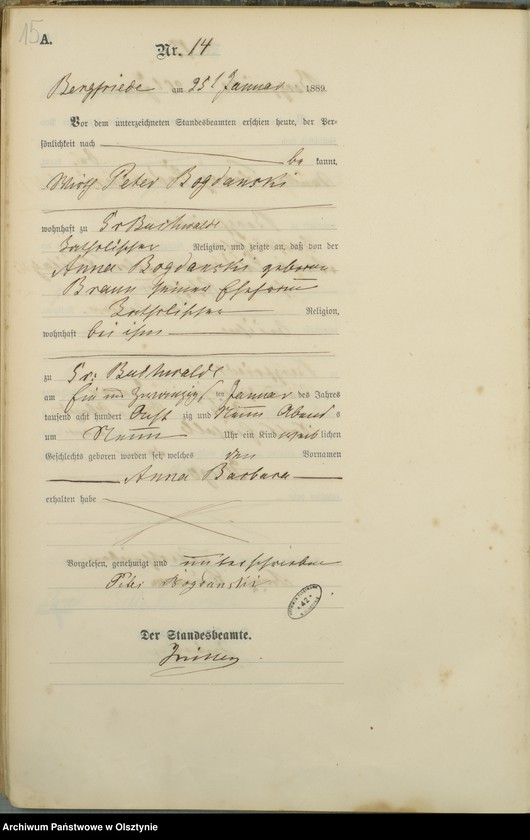 15
A.
Nr. 14
Bergfriede am 25t Januar 1889.
Vor dem unterzeichneten Standesbeamten erschien heute, der Per-
sönlichkeit nach
be kannt,
Wirth Peter Bogdanski
wohnhaft zu Gr Buchwalde
katholischer Religion, und zeigte an, daß von der
Anna Bogdanski geborene
Braun seiner Ehefrau
katholischer Religion,
wohnhaft bei ihm
zu Gr: Buchwalde
am ein und zwanzigst en Januar des Jahres
tausend acht hundert Acht zig und Neun Abend s
um Neun Uhr ein Kind weib lichen
Geschlechts geboren worden sei, welches den Vornamen
Anna Barbara
erhalten habe
Vorgelesen, genehmigt und unterschrieben
Peter Bogdanski
42
Der Standesbeamte.
Archiwum Państwowe w Olsztynie